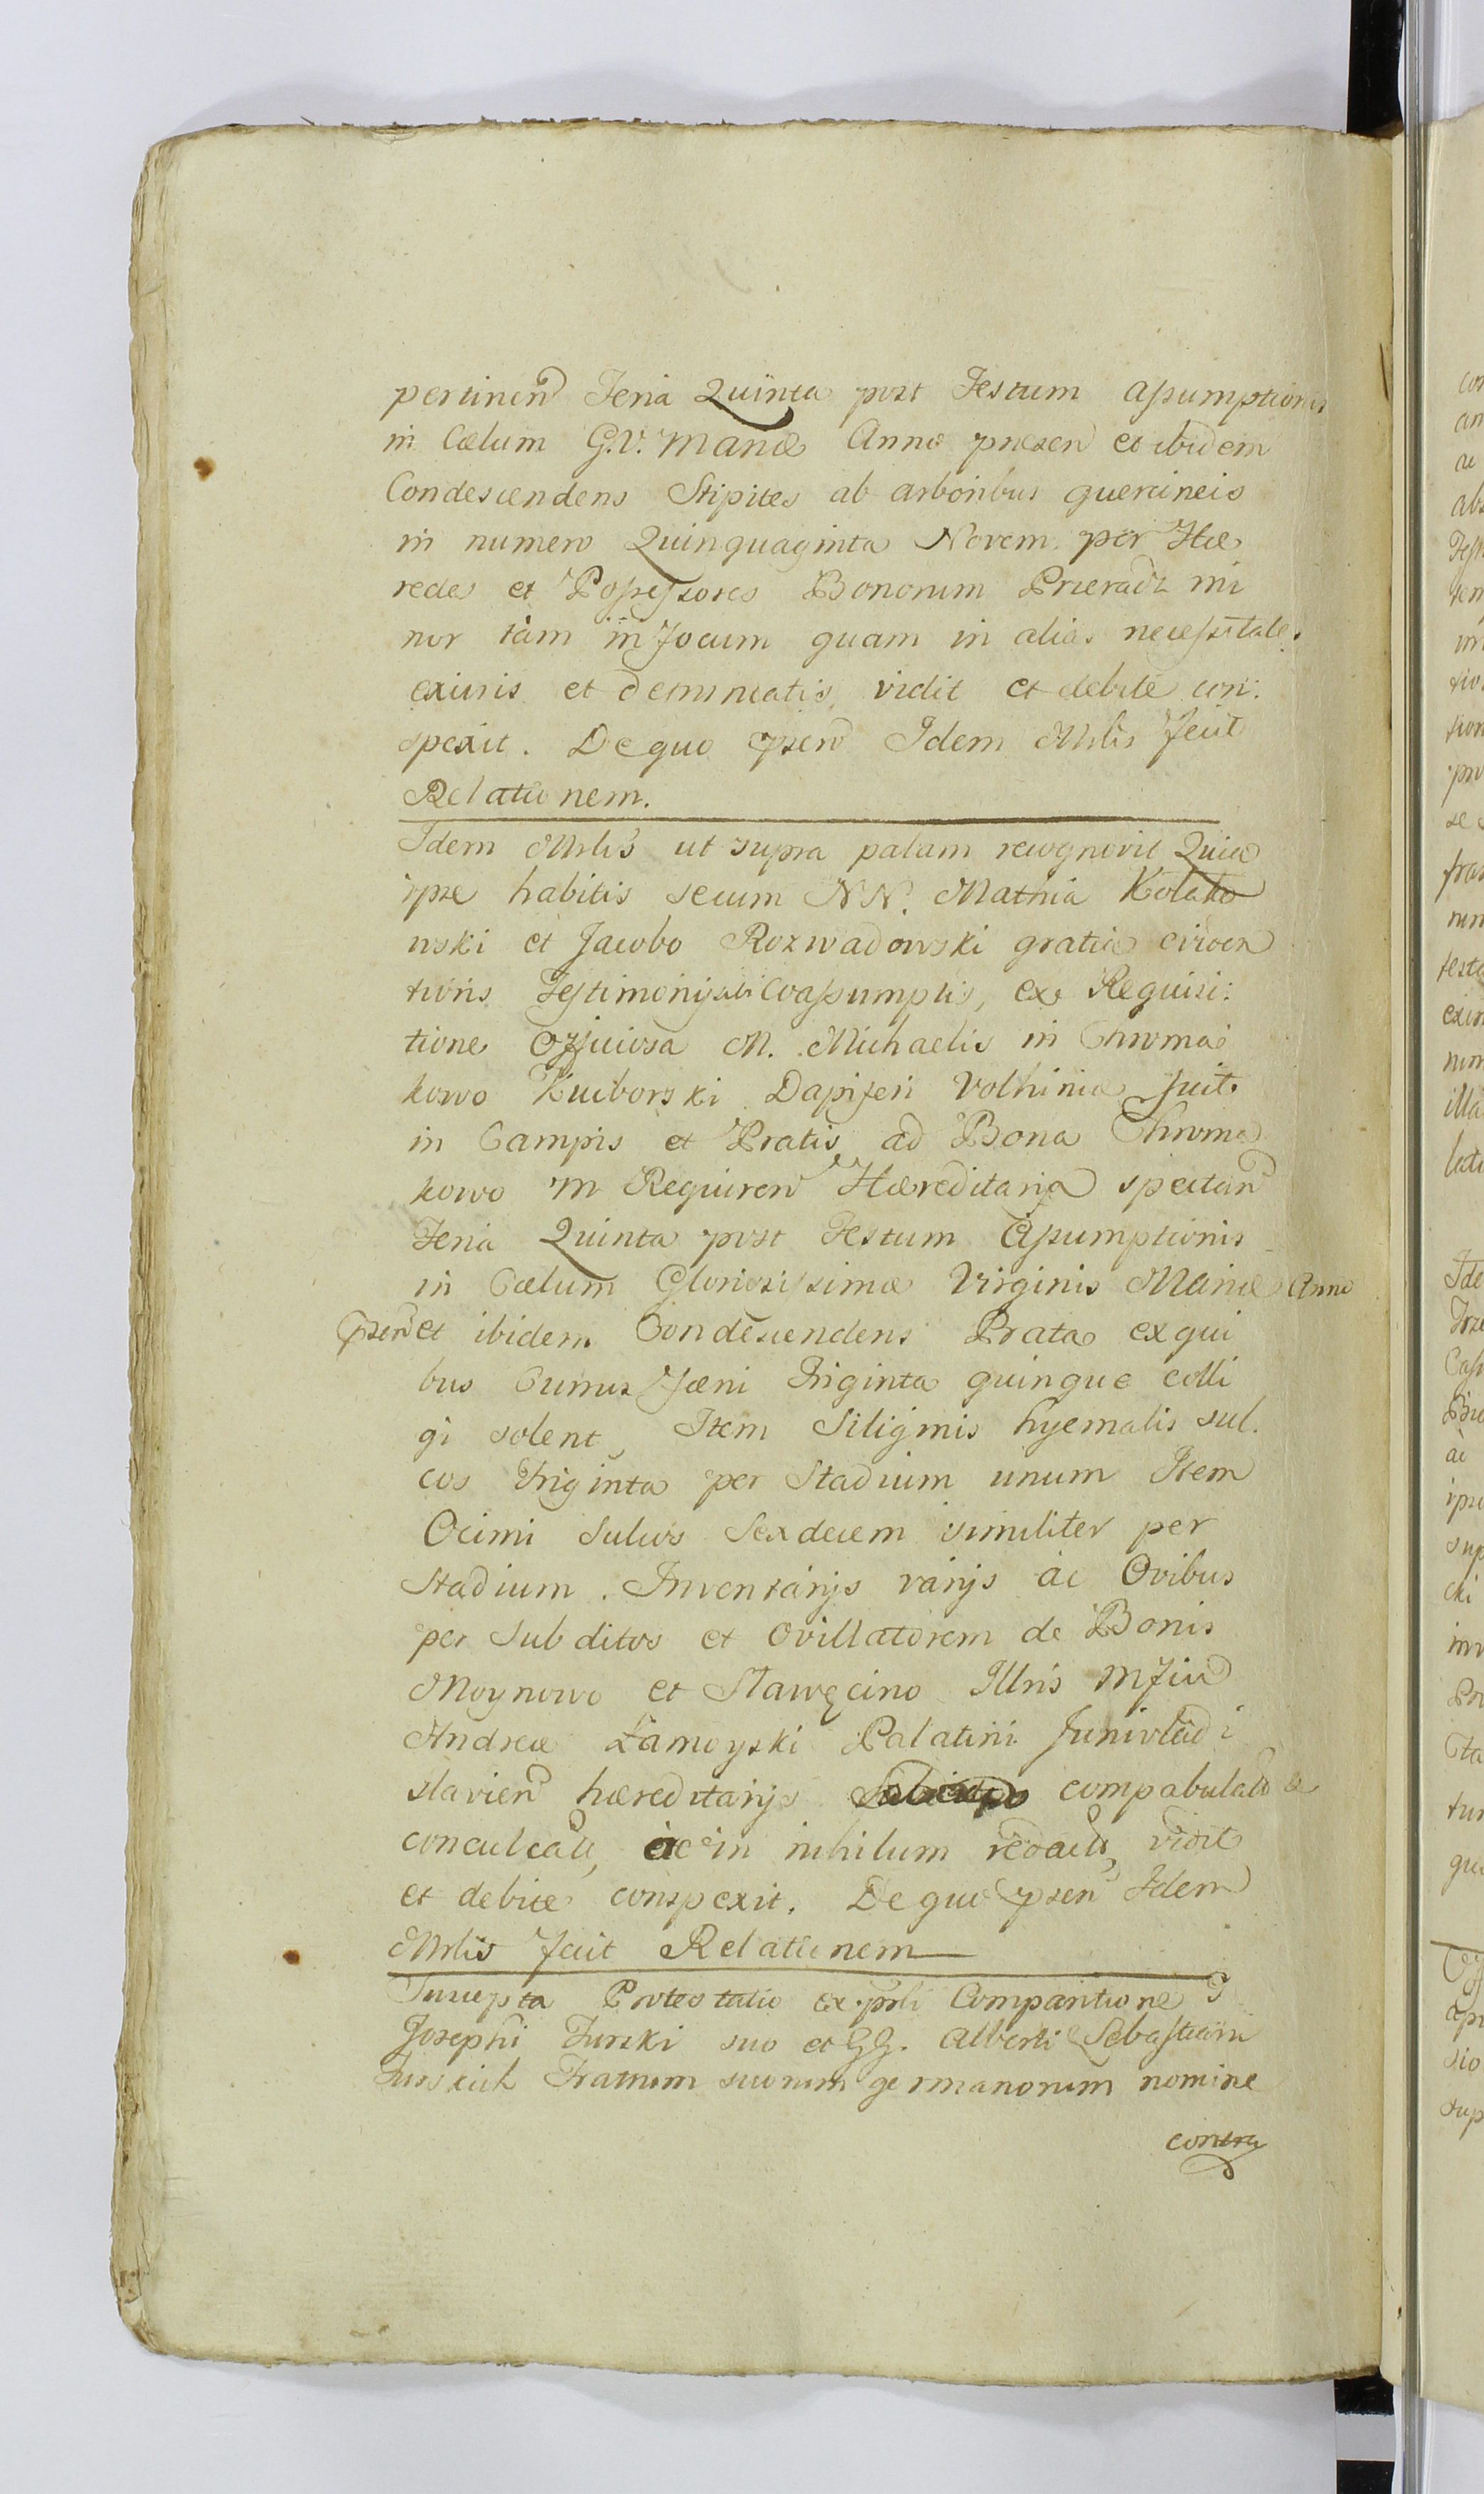 pertinen Feria Quinta post Festum Assumptionis
in Cælum G.V. Mariæ Anno præsen et ibidem
Condescendens Stipites ab arboribus quercineis
in numero Quinquaginta Novem per Hæ
redes et Possessores Bonorum Prieradz mi
nor tàm in focum quam in alias necessitates
excisis et detruncatis, vidit et debite con:
spexit. De quo psen Idem Mrlis fecit
Relationem.
Idem Mrlis ut supra palam recognovit Quia
ipse habitis secum NN. Mathia Kołako
wski et Jacobo Rozwadowski gratia eviden
tioris Testimonij sibi Coassumptis, ex Requisi:
tione Officiosa M. Michaelis in Chroma
kowo Kuiborski Dapiferi Volhiniæ fuit
in Campis et Pratis ad Bona Chroma
kowo M Requiren Hæreditaria spectan
Feria Quinta post Festum Assumptionis
in Cælum Gloriosissimæ Virginis Mariæ Anno
psen et ibidem Condescendens Prata ex qui
bus Currus fæni Triginta quinque colli
gi solent, Item Siliginis hyemalis sul.
cos Triginta per Stadium unum Item
Ocimi Sulcos Sexdecem similiter per
Stadium. Inventarijs varijs ac Ovibus
per Subditos et Ovillatorem de Bonis
Moynowo et Sławęcino Illris Mfici
Andreæ Zamoyski Palatini Junivladi
slavien hæreditarijs compabulata
conculcata, ac in nihilum redacta, vidit
et debite conspexit. De quo psen Idem
Mrlis fecit Relationem
Suscepta Protestatio ex psli Comparitione G
Josephi Turski suo et GG. Alberti Sebastiani
Turskich Fratrum suorum germanorum nomine
contra